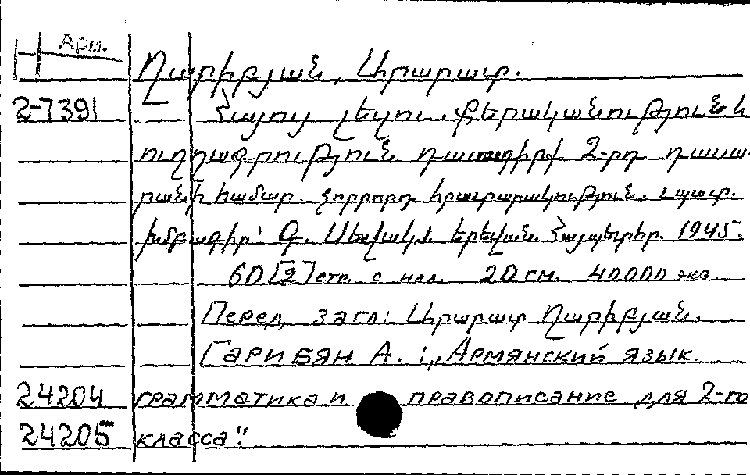 Арм.
Ղարիբյան, Արարատ.
2-7391 — Հայոց լեզու. Քերականություն և
ուղղագրություն դասագիրք 2-րդ դասա-
րանի համար. չորրորդ հրատարակություն. պատ.
խմբագիր՝ Գ. Սևակ. Երևան. Հայպետհր. 1945.
60[2] стр. с илл. 20 см. 40000 экз.
Перед загл: Արարատ Ղարիբյան.
Гарибян А. : „Армянский язык.
24204 грамматика и правописание для 2-го
24205 класса".